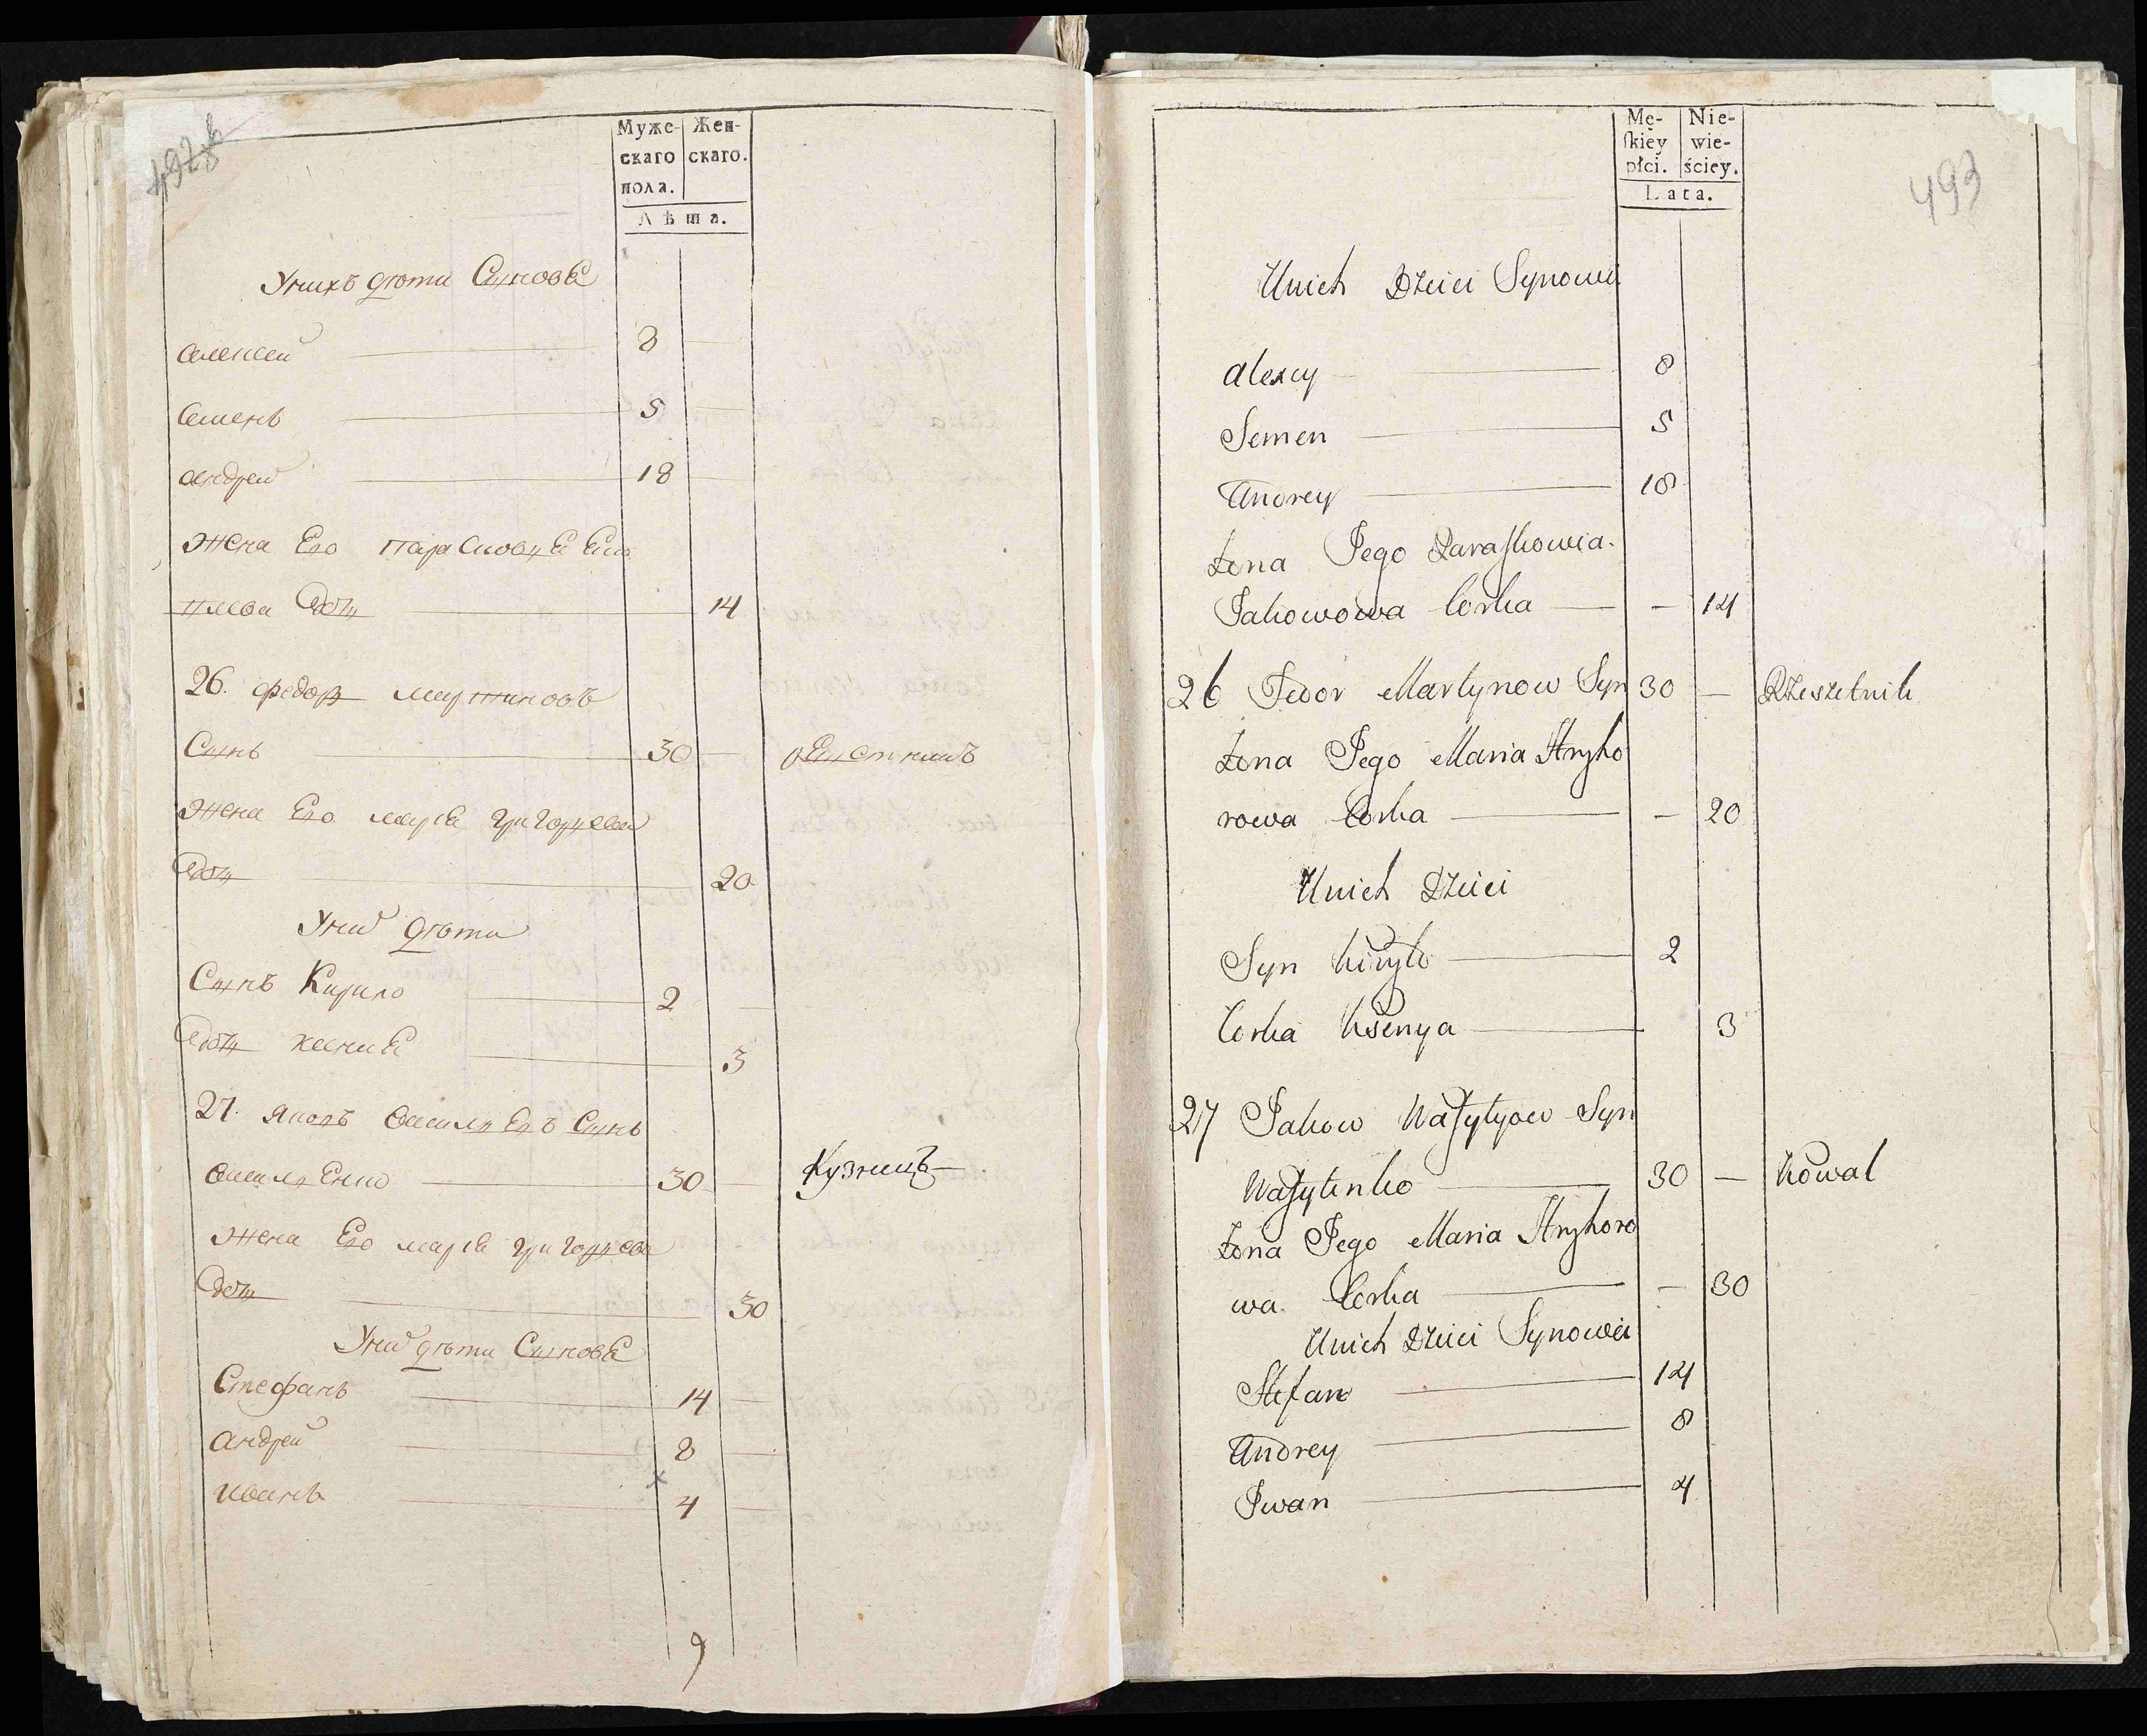 492
Муже-
скаго
пола.
Жен-
скаго.
Лѣта.
Унихъ дѣти Сыновя
алексей 8
Семенъ 5
андрей 18
жена Его парасковия
дочь 14
26. федоръ мартиновъ
Сынъ 30
жена Его мария григорьева
дочь 20
Уних дѣти
Сынъ Кирило 2
дочь ксения 3
27. яковъ васильевъ Сынъ
василенко 30 Кузнецъ
жена Его мария григорьева
дочь 30
Уних дѣти Сыновя
Стефанъ 14
андрей 8
х
иванъ 4
9
493
Mę-
skiey
płci.
Nie-
wie-
ściey.
Lata.
Unich Dzieci Synowie
alexey 8
Semen 5
Andrey 18
Żona Jego Paraskowia
Jakowowa Corka — 14
26 Fedor Martynow Syn 30 — Rzeszetnik
Żona Jego Maria Hryho
rowa Corka — 20
Unich Dzieci
Syn Kiryło 2
Corka Ksenya 3
27 Jakow Wasylyow Syn
Wasylenko 30 — Kowal
Żona Jego Maria Hryhoro
wa Corka — 30
Unich Dzieci Synowie
Stefan 14
Andrey 8
Iwan 4